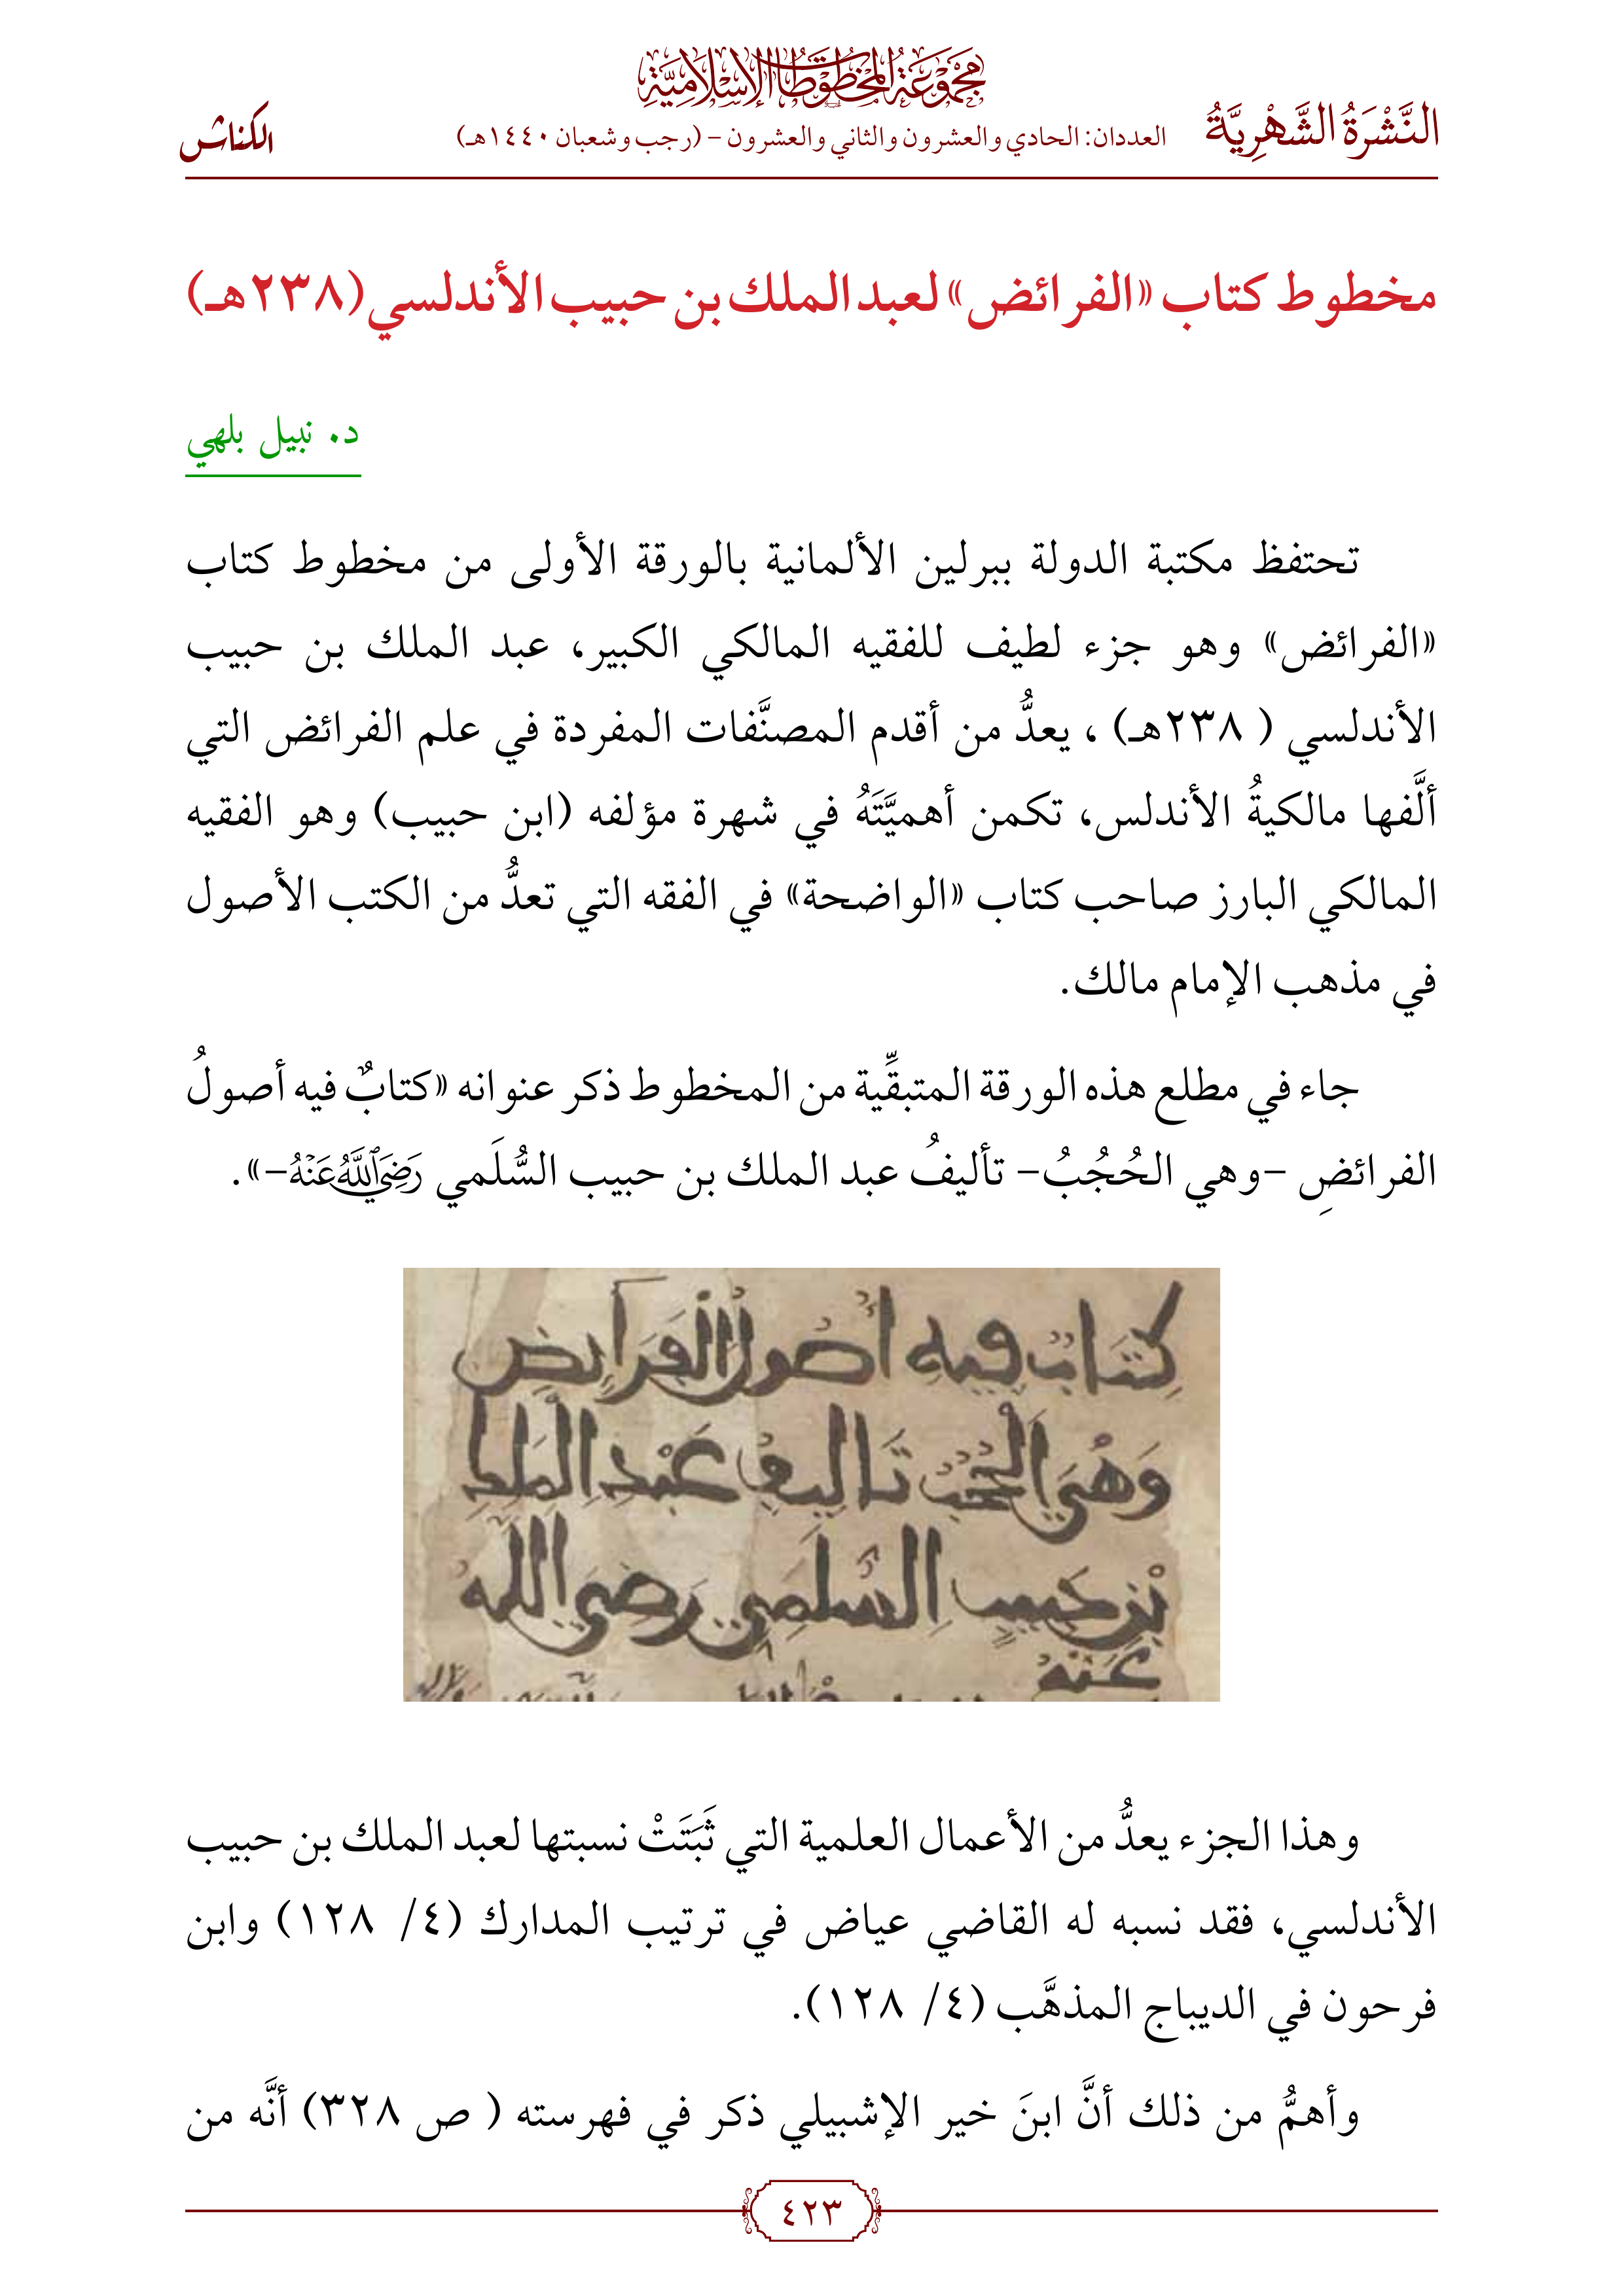 مجموعة المخطوطات الإسلامية
النَّشْرَةُ الشَّهْرِيَّةُ
العددان: الحادي والعشرون والثاني والعشرون – (رجب وشعبان ١٤٤٠هـ)
الكناش
مخطوط كتاب «الفرائض» لعبد الملك بن حبيب الأندلسي (٢٣٨هـ)
د. نبيل بلهي
تحتفظ مكتبة الدولة ببرلين الألمانية بالورقة الأولى من مخطوط كتاب
«الفرائض» وهو جزء لطيف للفقيه المالكي الكبير، عبد الملك بن حبيب
الأندلسي ( ٢٣٨هـ) ، يعدُّ من أقدم المصنَّفات المفردة في علم الفرائض التي
ألَّفها مالكيةُ الأندلس، تكمن أهميَّتَهُ في شهرة مؤلفه (ابن حبيب) وهو الفقيه
المالكي البارز صاحب كتاب «الواضحة» في الفقه التي تعدُّ من الكتب الأصول
في مذهب الإمام مالك.
جاء في مطلع هذه الورقة المتبقِّية من المخطوط ذكر عنوانه «كتابٌ فيه أصولُ
الفرائضِ –وهي الحُجُبُ– تأليفُ عبد الملك بن حبيب السُّلَمي رَضِيَ اللَّهُ عَنْهُ–».
كِتَابٌ فِيهِ أُصُولُ الفَرَائِضِ
وَهْيَ الْحُجُبُ تَالِيفُ عَبْدِ المَلِكِ
بْنِ حَبِيبٍ السُّلَمِي رَضِيَ اللهُ
عَنْهُ
وهذا الجزء يعدُّ من الأعمال العلمية التي ثَبَتَتْ نسبتها لعبد الملك بن حبيب
الأندلسي، فقد نسبه له القاضي عياض في ترتيب المدارك (٤/ ١٢٨) وابن
فرحون في الديباج المذهَّب (٤/ ١٢٨).
وأهمُّ من ذلك أنَّ ابنَ خير الإشبيلي ذكر في فهرسته ( ص ٣٢٨) أنَّه من
٤٢٣